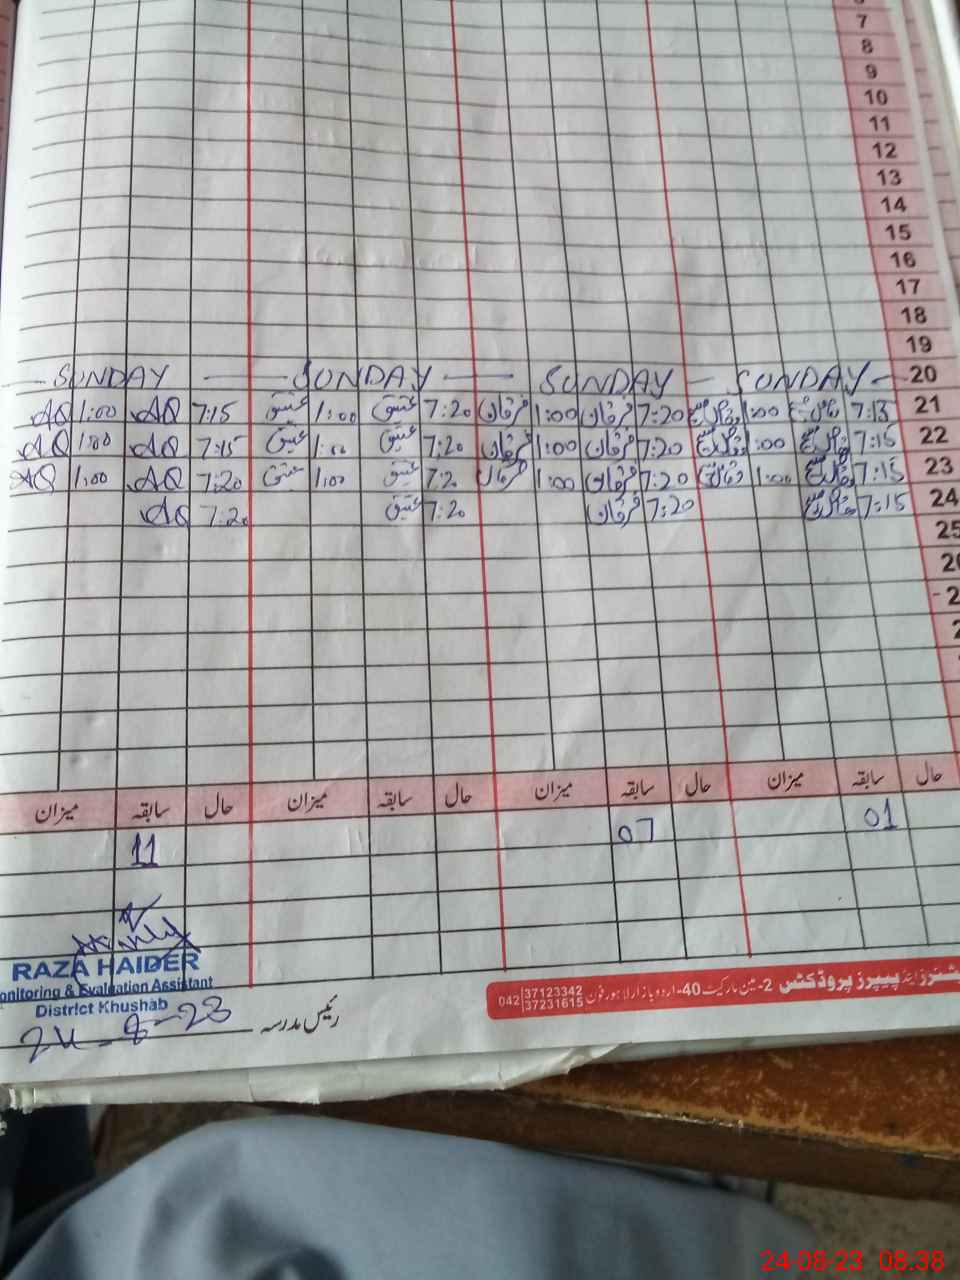 7
8
9
10
11
12
13
14
15
16
17
18
19
SUNDAY SUNDAY SUNDAY SUNDAY 20
AQ 1:00 AQ 7:15 عتیق 1:00 عتیق 7:20 فرقان 1:00 فرقان 7:20 1:00 7:15 21
AQ 1:00 AQ 7:15 عتیق 1:00 عتیق 7:20 فرقان 1:00 فرقان 7:20 1:00 7:15 22
AQ 1:00 AQ 7:20 عتیق 1:00 عتیق 7:20 فرقان 1:00 فرقان 7:20 1:00 7:15 23
AQ 7:20 عتیق 7:20 فرقان 7:20 7:15 24
25
حال سابقہ میزان حال سابقہ میزان حال سابقہ میزان حال سابقہ میزان
11 07 01
RAZA HAIDER
onitoring & Evaluation Assistant
District Khushab
24-8-23
رئیس مدرسہ
پیپرز پروڈکٹس 2-مین مارکیٹ 40-اردو بازار لاہور فون 042 37123342 37231615
24-08-23 08:38